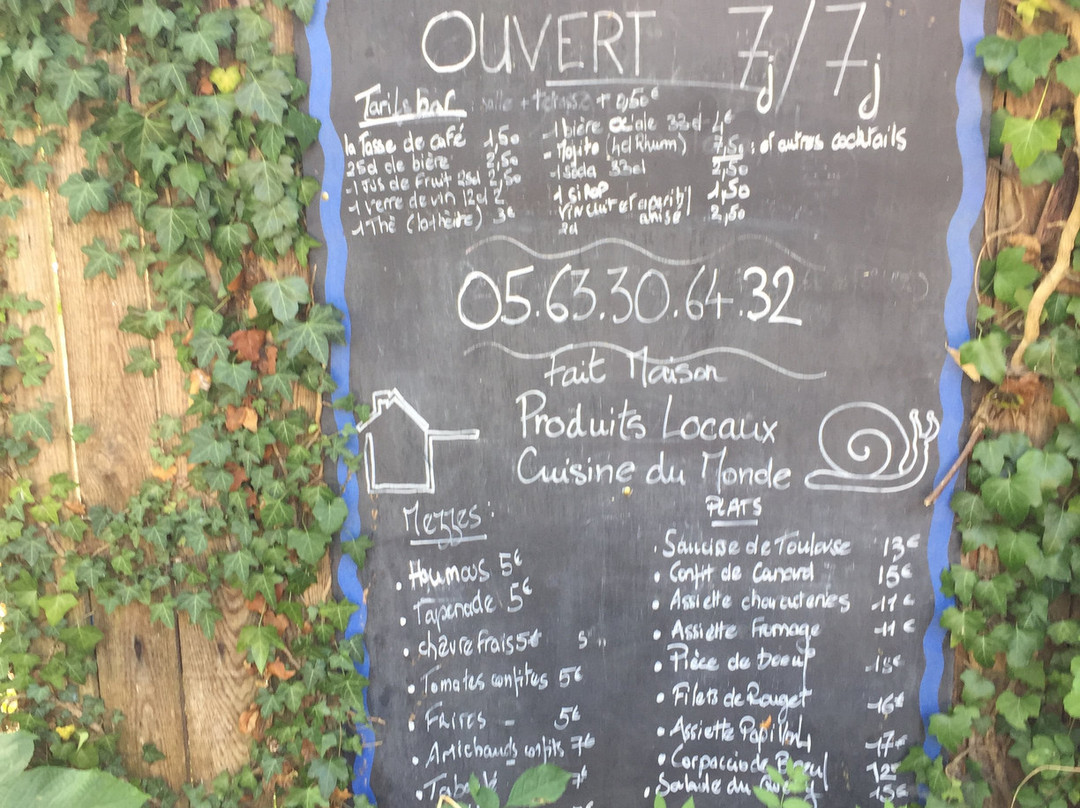 OUVERT 7j/7j
Tarifs bar salle + terrasse + 0,50€
la Tasse de café 1,50
25cl de bière 2,50
-1 jus de Fruit 25cl 2,50
-1 verre de vin 12cl 2
-1 Thé (la théière) 3€
-1 bière 33cl 4€
- Mojito (4cl Rhum) 7,50 : et autres cocktails
-1 soda 33cl 2,50
1 SIROP 1,50
Vin cuit et aperitif
anisé 2,50
2cl
05.63.30.64.32
Fait Maison
Produits Locaux
Cuisine du Monde
Mezzes:
• Houmous 5€
• Tapenade 5€
• chèvre frais 5€
• Tomates confites 5€
• 5€
• Artichauds confits 7€
• Taboulé
PLATS
• Saucisse de Toulouse 13€
• Confit de Canard 15€
• Assiette charcuteries 11€
• Assiette Fromage 11€
• Pièce de Boeuf
• Filets de Rouget 16€
• Assiette Papillon 17€
• Carpaccio de Boeuf 12€
• Salade du Quercy 15€